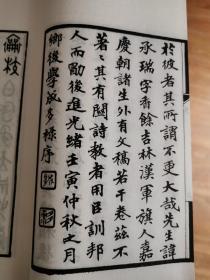 於彼者其所謂不更大哉先生諱
承瑞字香餘吉林漢軍旗人嘉
慶朝諸生外有文稿若干卷茲不
著著其有關詩教者用臣訓邦
人而勵後進光緒壬寅仲秋之月
鄉後學成多祿序